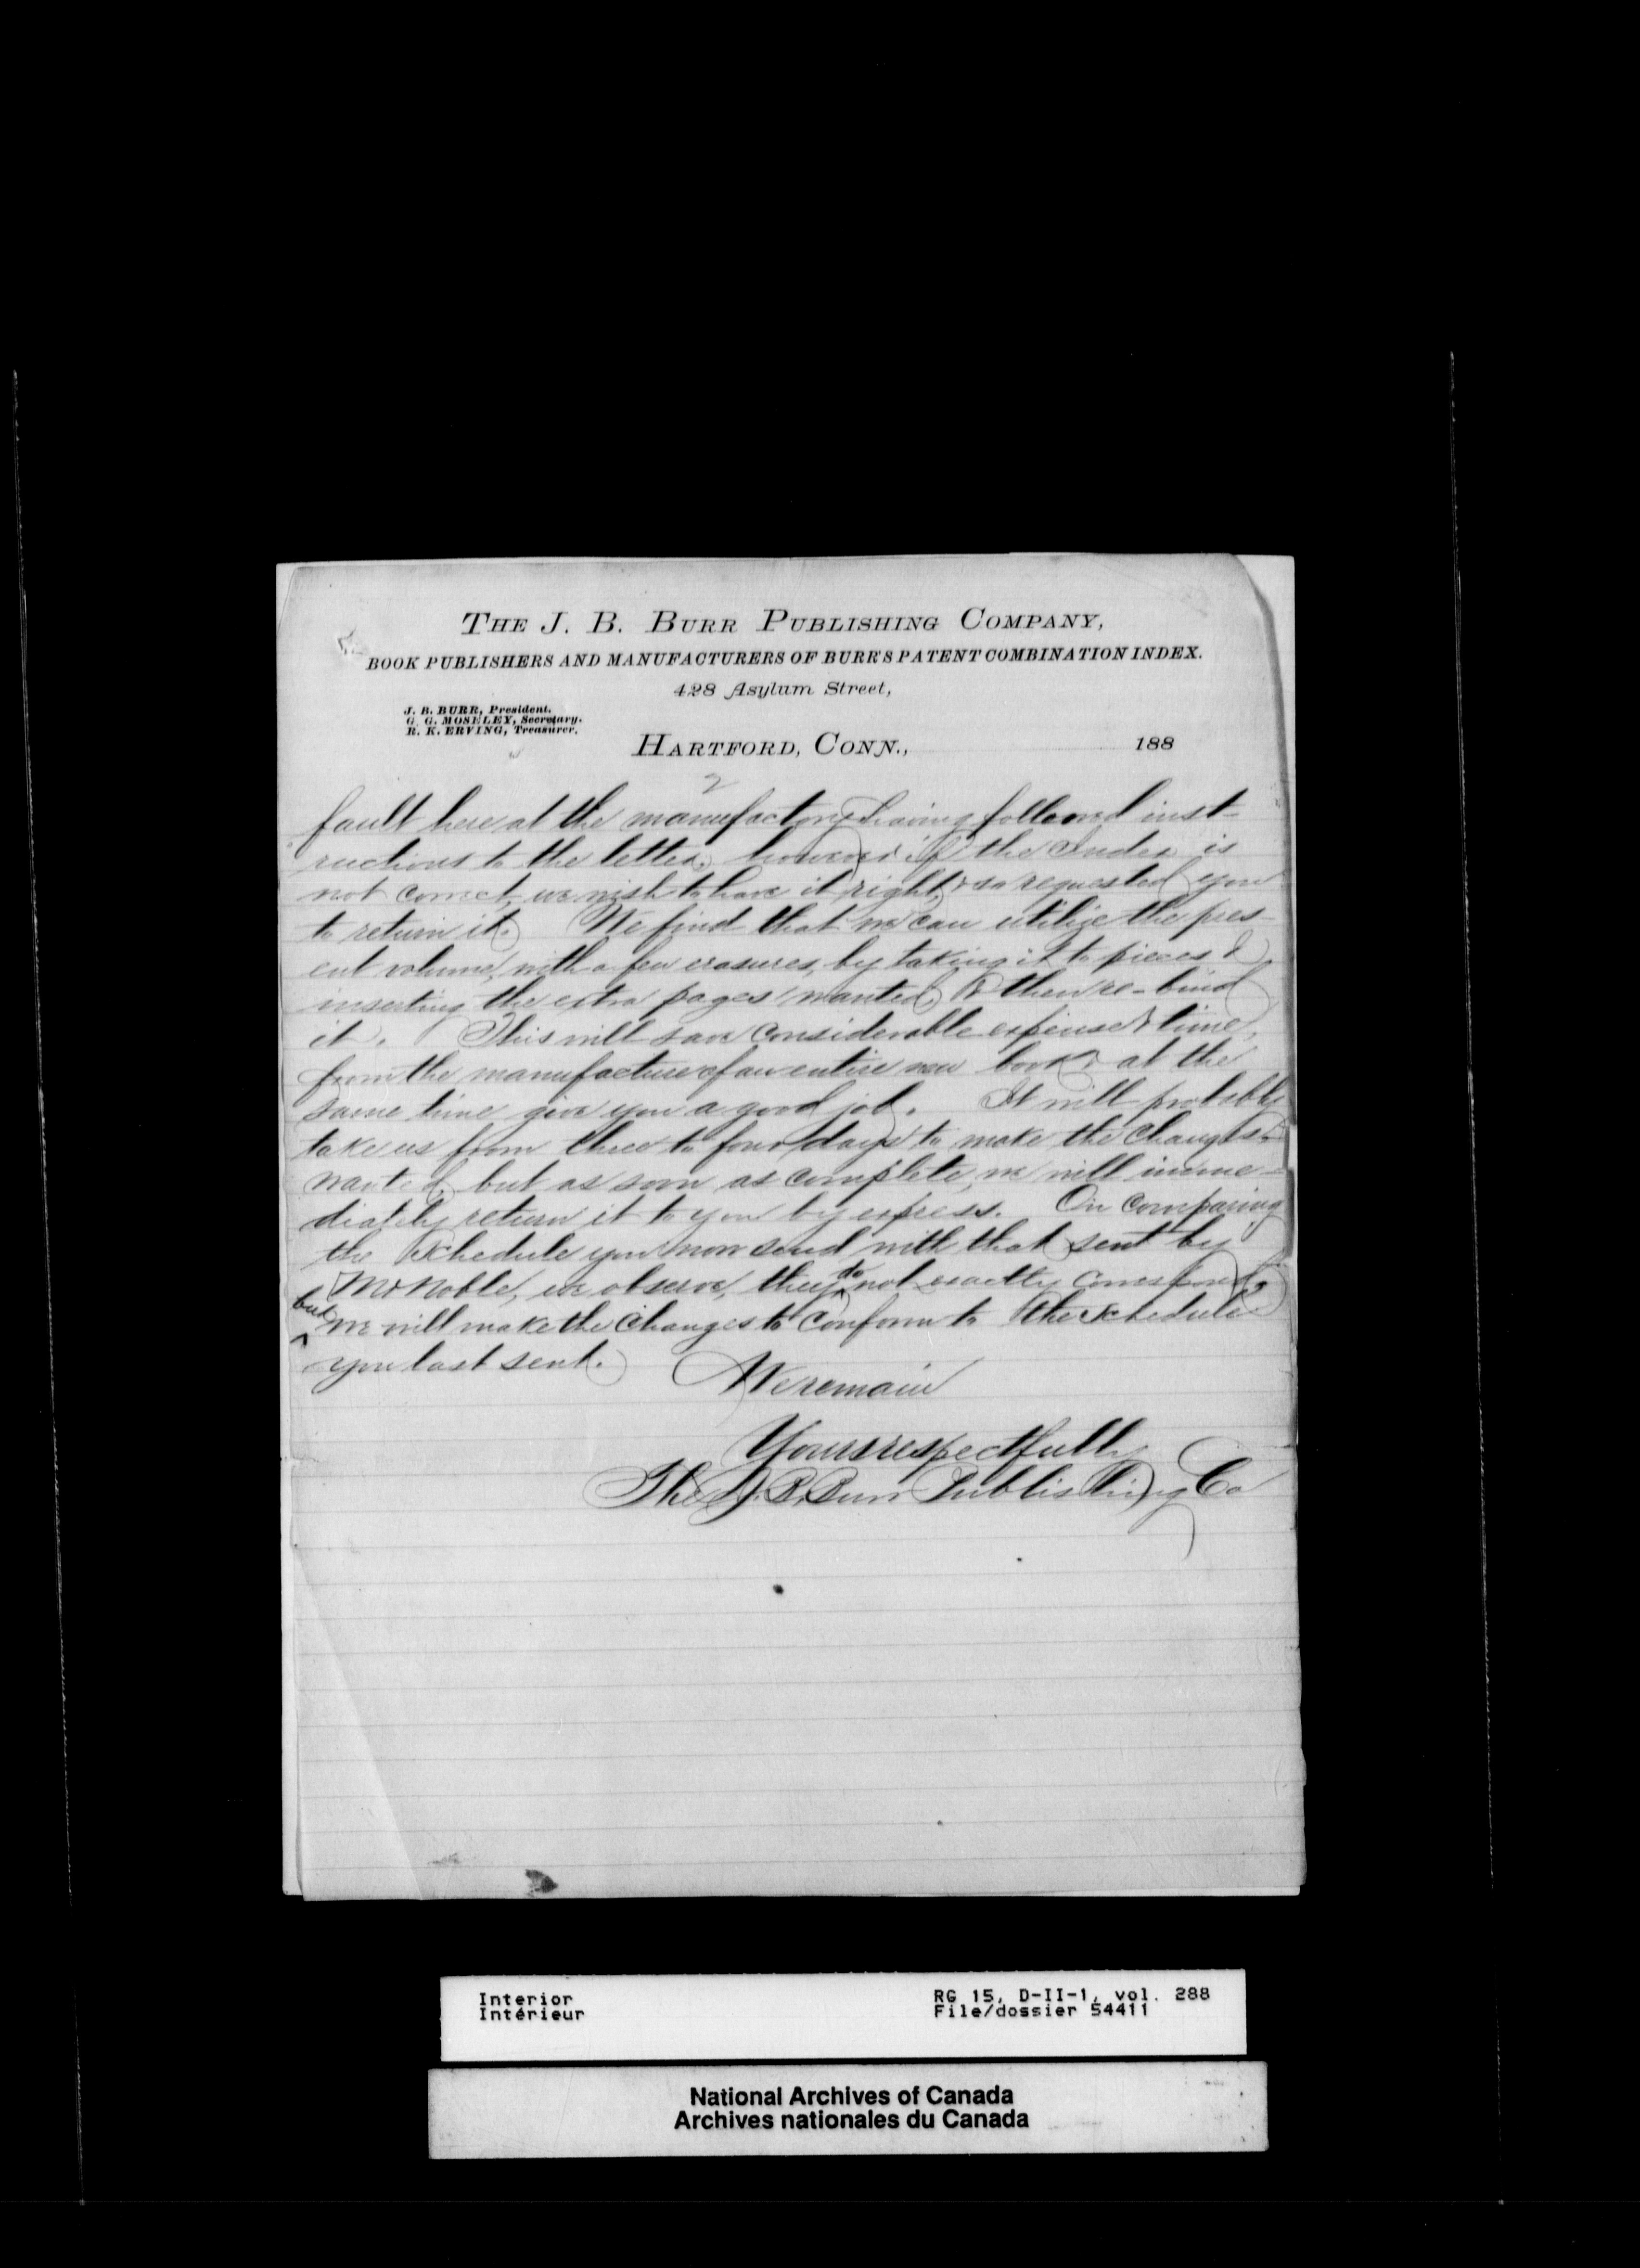 THE J. B. BURR PUBLISHING COMPANY,
BOOK PUBLISHERS AND MANUFACTURERS OF BURR'S PATENT COMBINATION INDEX.
428 Asylum Street,
J. B. BURR, President.
G. G. MOSELEY, Secretary.
R. K. ERVING, Treasurer.
HARTFORD, CONN., 188
2
fault here at the manufactory, having followed inst-
ructions to the letter, however if the Index is
not correct, we wish to have it right, & so requested you
to return it. We find that we can utilize the pres-
ent volume, with a few erasures, by taking it to pieces &
inserting the extra pages wanted, & then re-bind
it. This will save considerable expense & time,
from the manufacture of an entire new book & at the
same time give you a good job. It will probably
take us from three to four days to make the changes
wanted, but as soon as complete, we will imme-
diately return it to you by express. On comparing
the schedule you now send with that sent by
Mr Noble, we observe, they do not exactly correspond,
but we will make the changes to conform to the schedule
you last sent.
We remain
Yours respectfully
The J. B. Burr Publishing Co
Interior
Intérieur
RG 15, D-II-1, vol. 288
File/dossier 54411
National Archives of Canada
Archives nationales du Canada